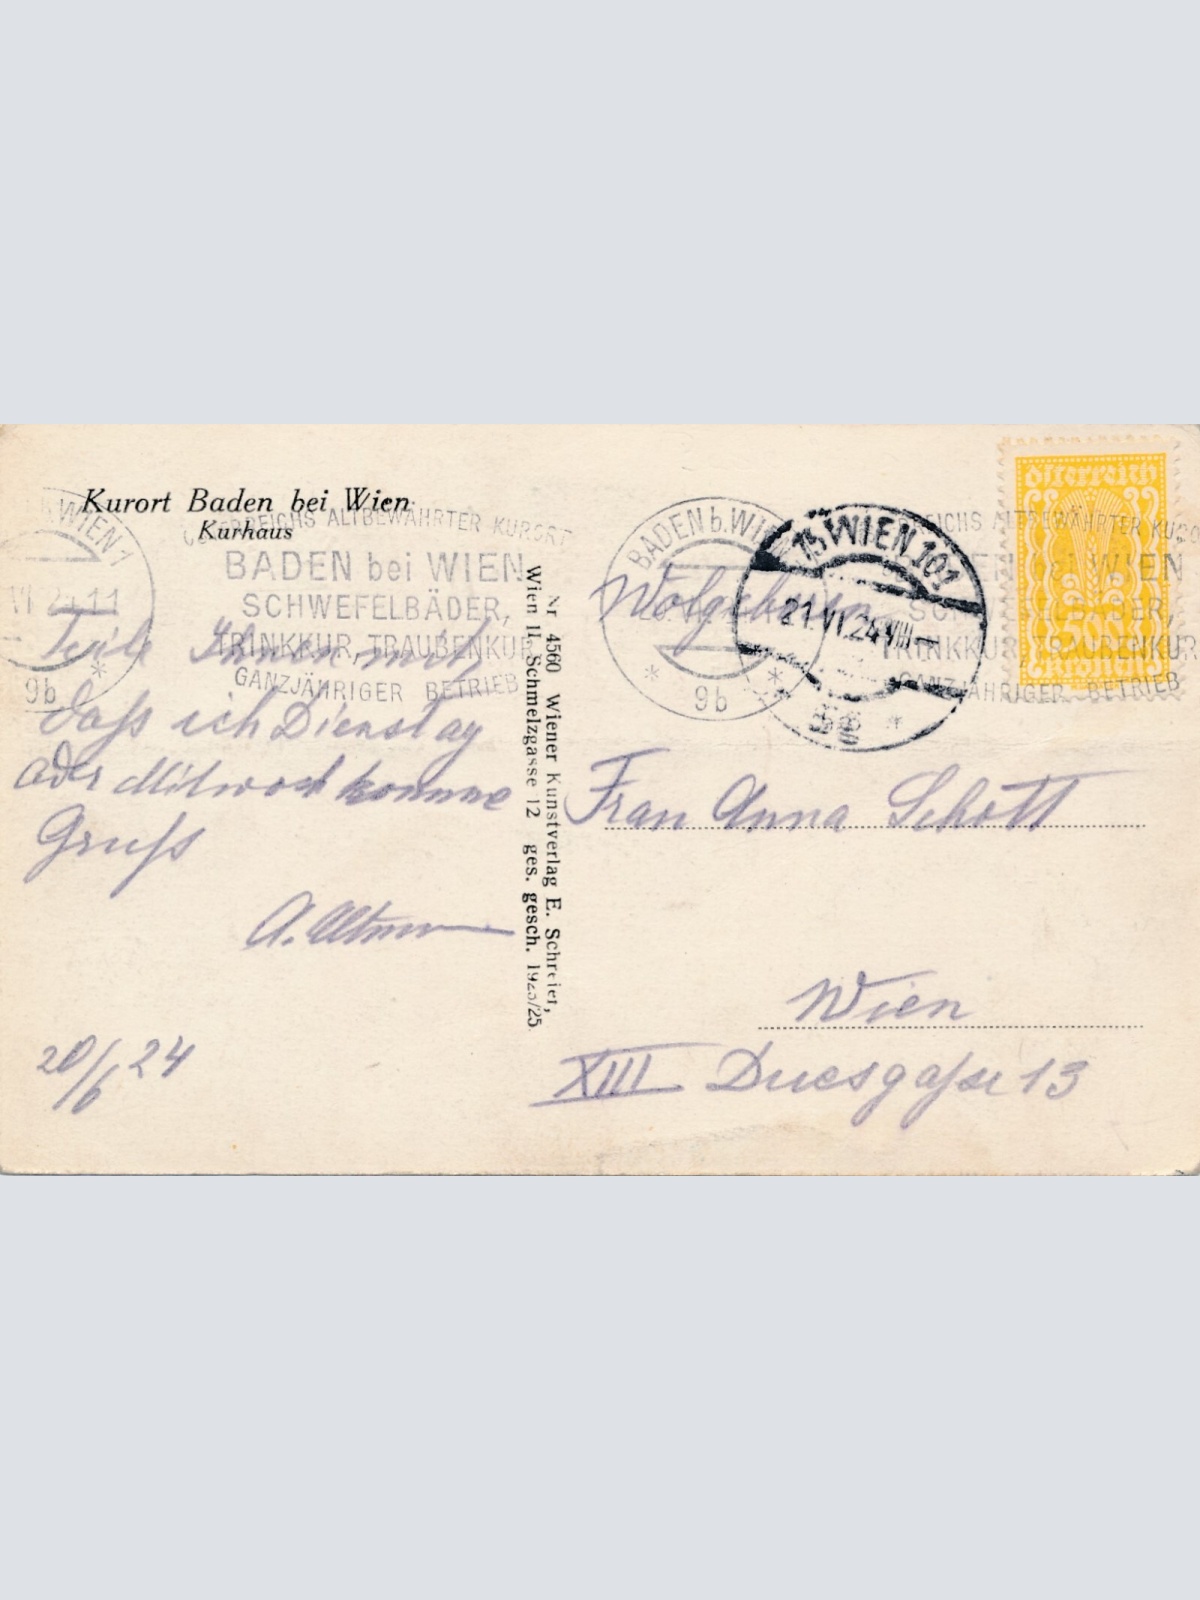 Kurort Baden bei Wien
Kurhaus
WIEN 1
VI 24 11
9b
ÖSTERREICHS ALTBEWÄHRTER KURORT
BADEN bei WIEN
SCHWEFELBÄDER,
TRINKKUR, TRAUBENKUR
GANZJÄHRIGER BETRIEB
Teile Ihnen mit
daß ich Dienstag
oder Mittwoch komme
Gruß
A. Altmann
20/6 24
Nr 4560 Wiener Kunstverlag E. Schreier,
Wien II. Schmelzgasse 12 ges. gesch. 1923/25
BADEN b. WIEN
9b
13 WIEN 101
21.VI.24 VIII
REICHS ALTBEWÄHRTER KURO
EN bei WIEN
SCHWEFELBÄDER,
TRINKKUR, TRAUBENKUR
GANZJÄHRIGER BETRIEB
österreich
500
Kronen
Wolgeboren
Frau Anna Schott
Wien
XIII Duesgasse 13